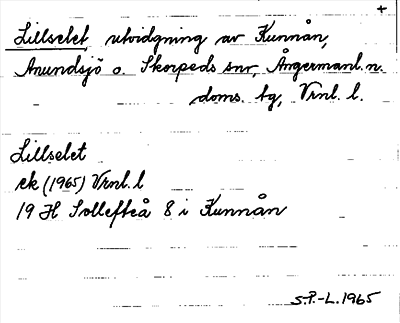 +
Lillselet, utvidgning av Kunnån,
Anundsjö o. Skorpeds snr, Ångermanl. n.
doms. tg, Vrnl. l.
Lillselet
ek (1965) Vrnl. l
19 H Sollefteå 8 i Kunnån
S.P.-L. 1965